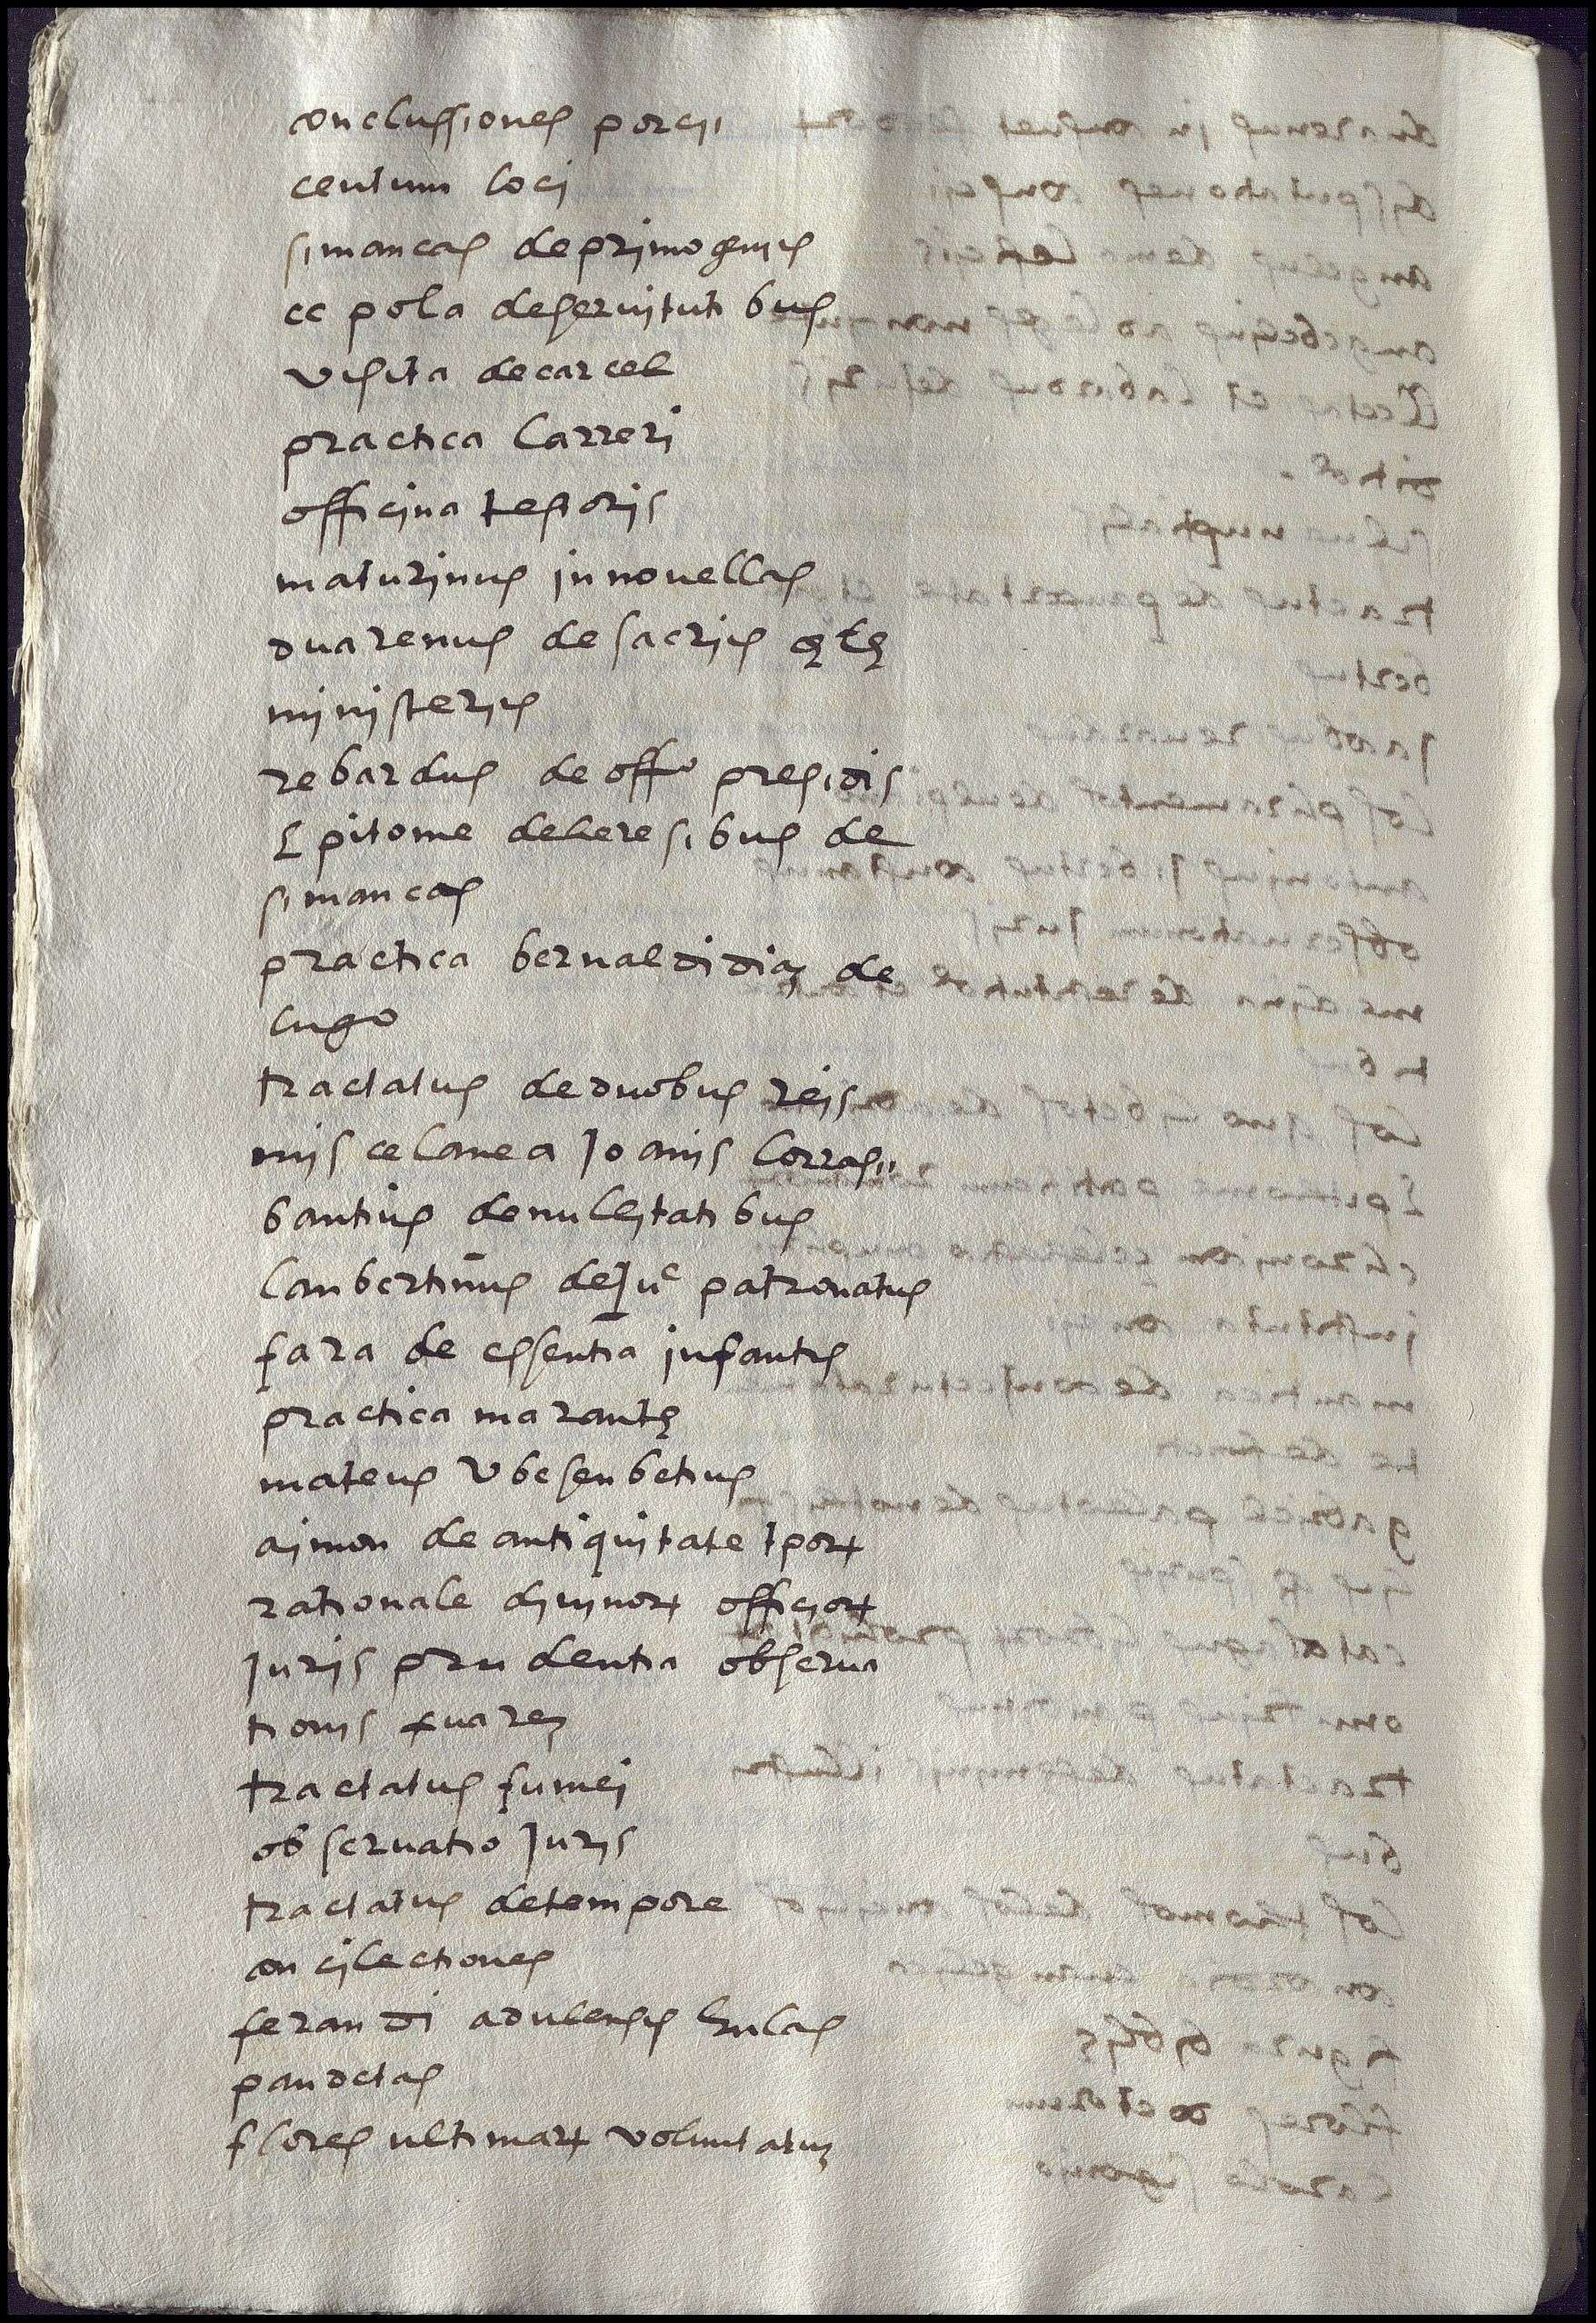 conclussiones porcii
centum loci
simancas de primogeniis
cepola de seruitutibus
visita de carcel
practica Carreri
officina testoris
maturinus in nouellas
duarenus de sacriis
ministeriis
rebardus de offo presidis
Epitome de heresibus de
simancas
practica bernaldi diaz de
lugo
tractatus de duobus reis
miscelanea Joanis Corrasii
bantius de nulitatibus
Lanbertinus de Jue patronatus
fara de essentia infantis
practica marante
mateus vbesenbetius
aimon de antiquitate tpor
rationale diuinor officior
Juris prudentia obserua
tionis suarez
tractatus fumei
obseruatio Juris
tractatus de tempore
concilectiones
ferandi adulensis
pandetas
flores ultimar voluntatum